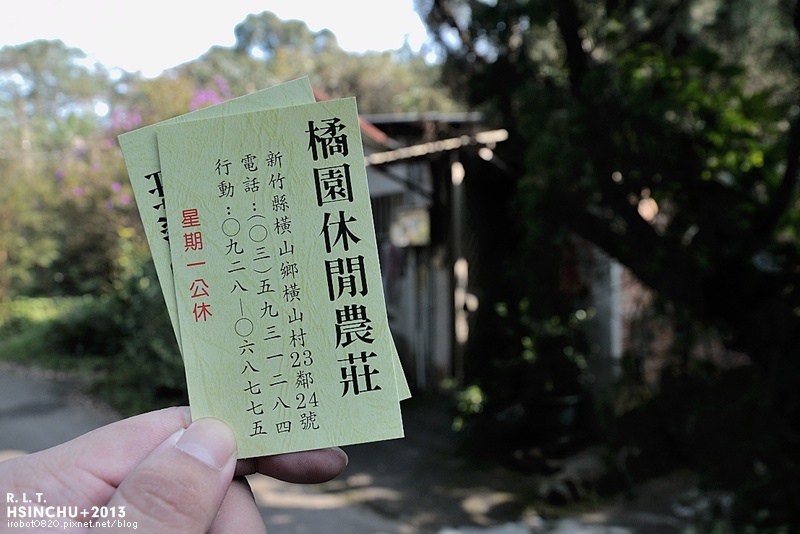 橘園休閒農莊
新竹縣橫山鄉橫山村23鄰24號
電話：(〇三)五九三一二八四
行動：〇九二八—〇六八七七五
星期一公休
R. L. T.
HSINCHU+2013
irobot0820.pixnet.net/blog